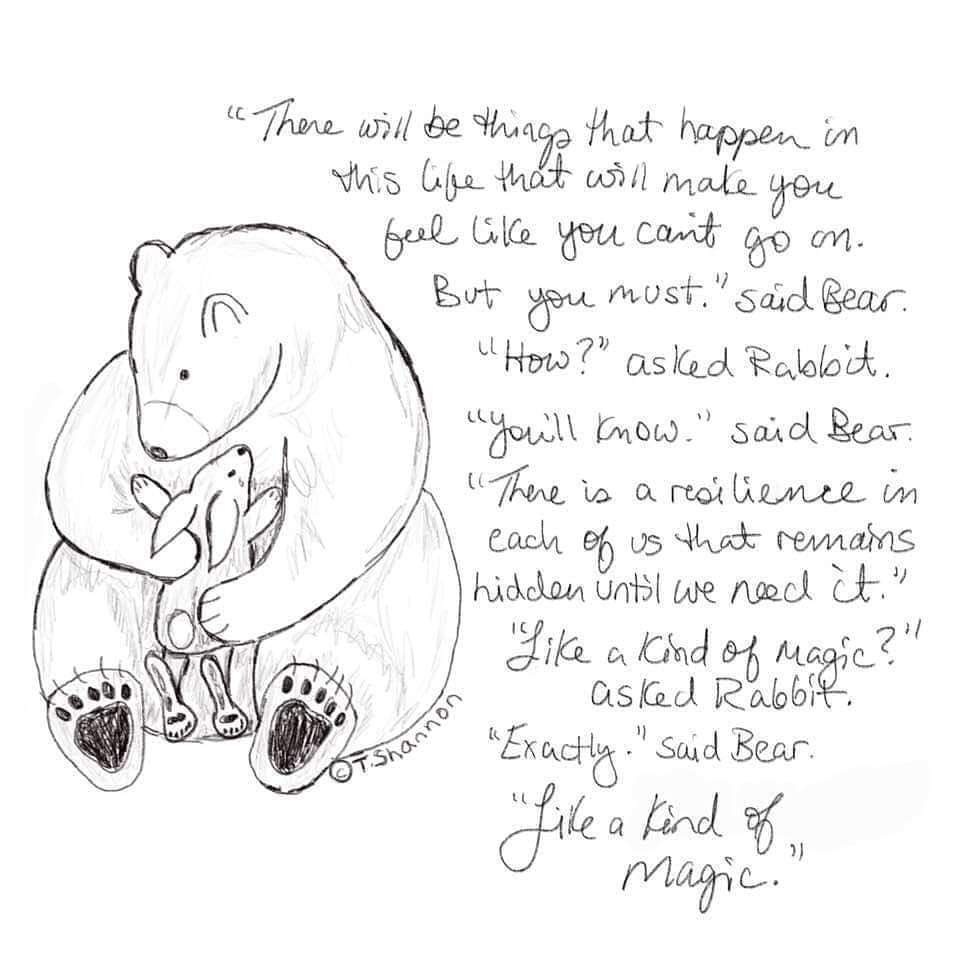 "There will be things that happen in
this life that will make you
feel like you can't go on.
But you must." said Bear.
"How?" asked Rabbit.
"You'll know." said Bear.
"There is a resilience in
each of us that remains
hidden until we need it."
"Like a kind of magic?"
asked Rabbit.
"Exactly." said Bear.
"Like a kind of
magic."
©T.Shannon